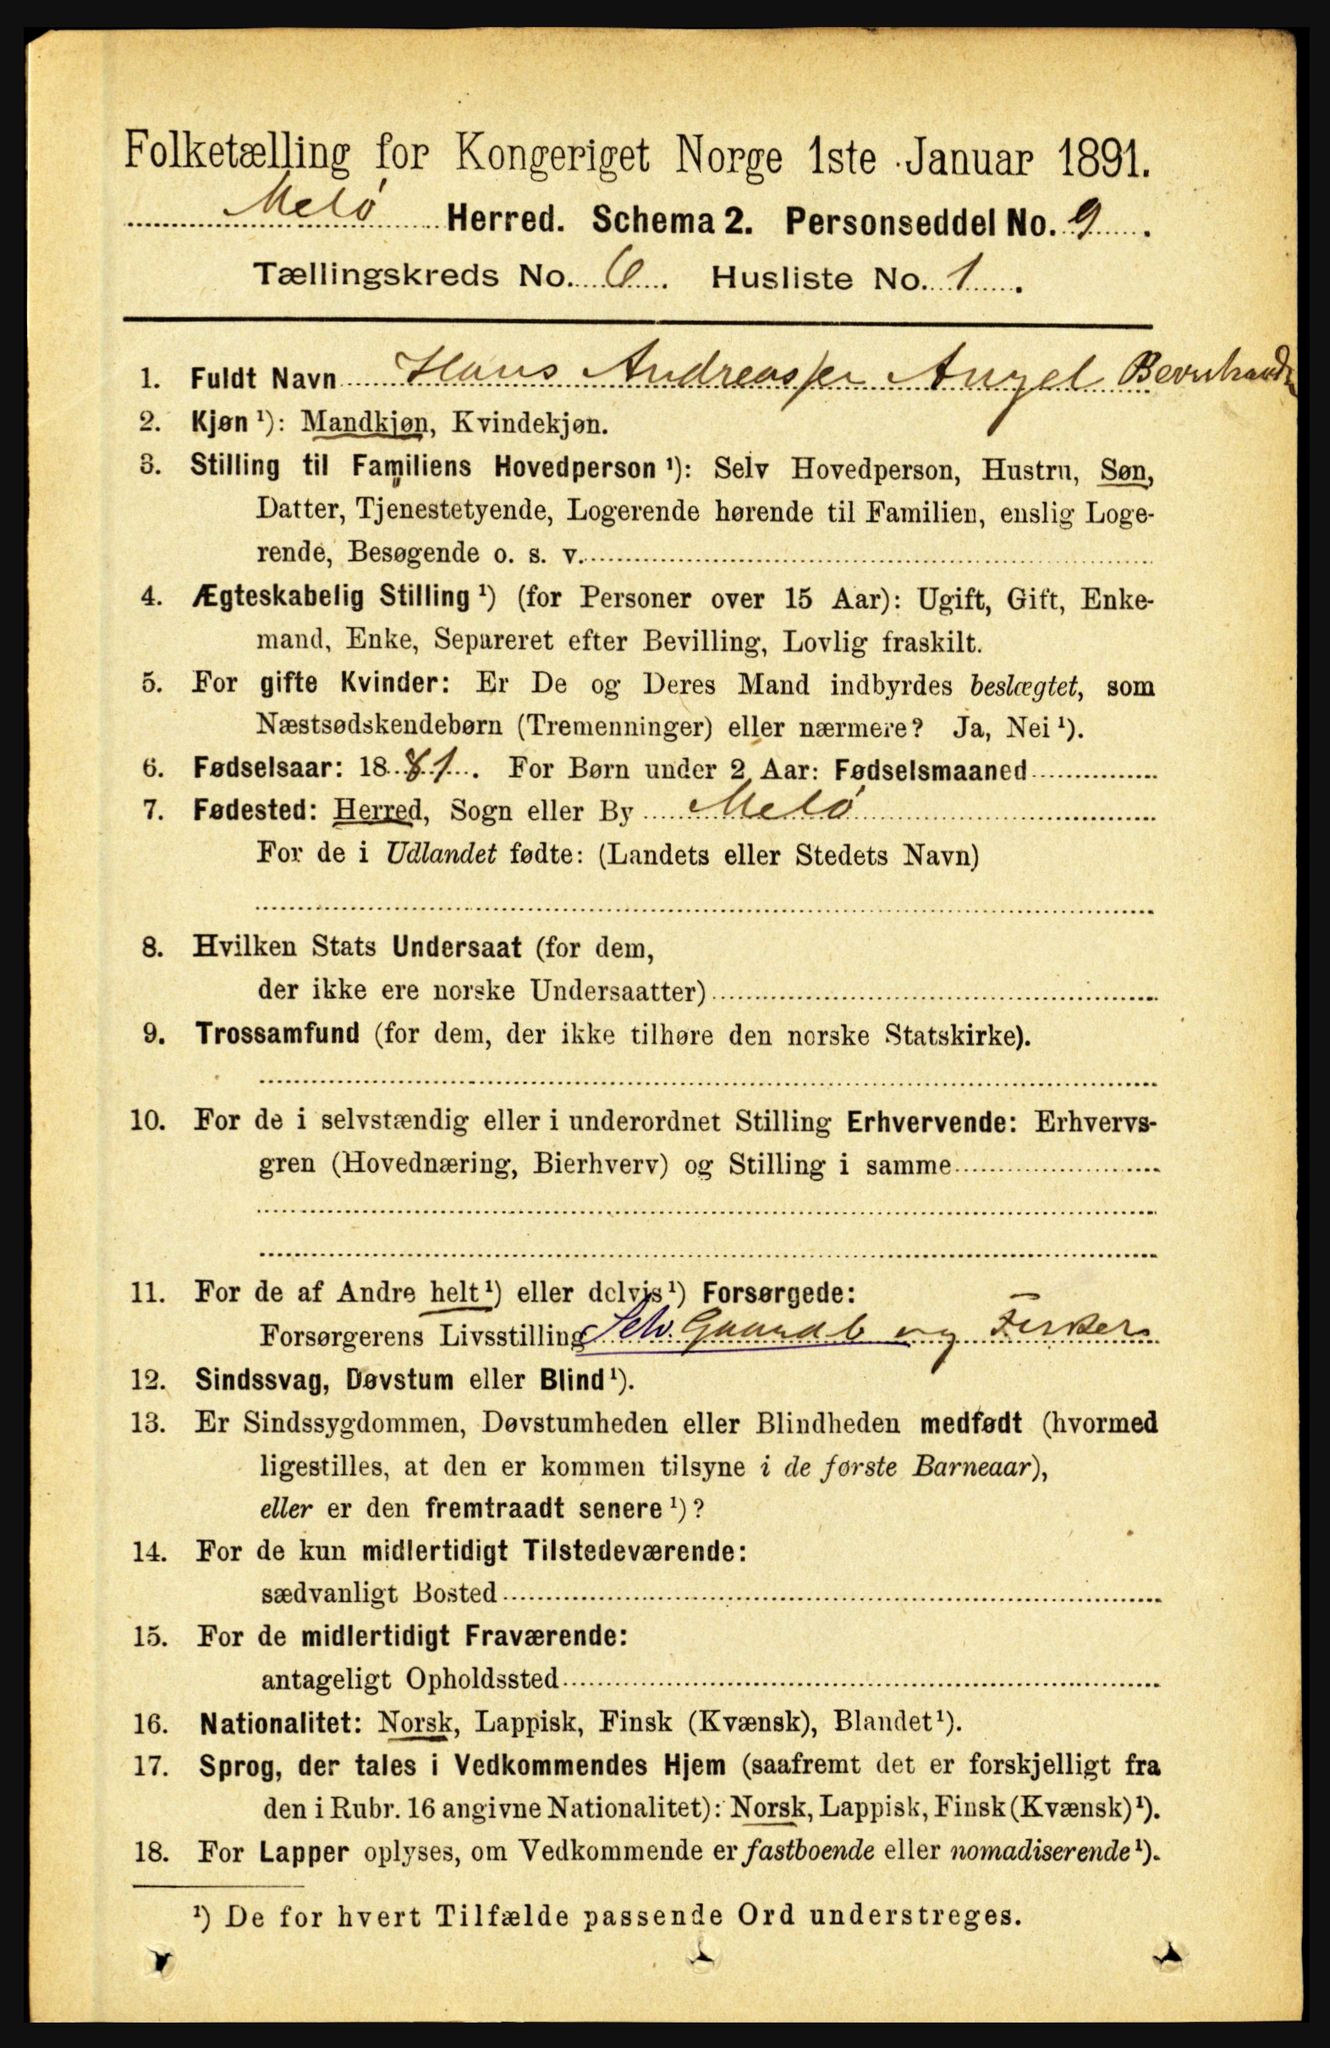 Folketælling for Kongeriget Norge 1ste Januar 1891.
Melö Herred. Schema 2. Personseddel No. 9.
Tællingskreds No. 6. Husliste No. 1.
1. Fuldt Navn Hans Andreas Angel
2. Kjøn ¹): Mandkjøn, Kvindekjøn.
3. Stilling til Familiens Hovedperson ¹): Selv Hovedperson, Hustru, Søn,
Datter, Tjenestetyende, Logerende hørende til Familien, enslig Loge-
rende, Besøgende o. s. v.
4. Ægteskabelig Stilling ¹) (for Personer over 15 Aar): Ugift, Gift, Enke-
mand, Enke, Separeret efter Bevilling, Lovlig fraskilt.
5. For gifte Kvinder: Er De og Deres Mand indbyrdes beslægtet, som
Næstsødskendebørn (Tremenninger) eller nærmere? Ja, Nei ¹).
6. Fødselsaar: 1881. For Børn under 2 Aar: Fødselsmaaned
7. Fødested: Herred, Sogn eller By Melö
For de i Udlandet fødte: (Landets eller Stedets Navn)
8. Hvilken Stats Undersaat (for dem,
der ikke ere norske Undersaatter)
9. Trossamfund (for dem, der ikke tilhøre den norske Statskirke).
10. For de i selvstændig eller i underordnet Stilling Erhvervende: Erhvervs-
gren (Hovednæring, Bierhverv) og Stilling i samme
11. For de af Andre helt ¹) eller delvis ¹) Forsørgede:
Forsørgerens Livsstilling Selv. Gaardb og Fisker
12. Sindssvag, Døvstum eller Blind ¹).
13. Er Sindssygdommen, Døvstumheden eller Blindheden medfødt (hvormed
ligestilles, at den er kommen tilsyne i de første Barneaar),
eller er den fremtraadt senere ¹)?
14. For de kun midlertidigt Tilstedeværende:
sædvanligt Bosted
15. For de midlertidigt Fraværende:
antageligt Opholdssted
16. Nationalitet: Norsk, Lappisk, Finsk (Kvænsk), Blandet ¹).
17. Sprog, der tales i Vedkommendes Hjem (saafremt det er forskjelligt fra
den i Rubr. 16 angivne Nationalitet): Norsk, Lappisk, Finsk (Kvænsk) ¹).
18. For Lapper oplyses, om Vedkommende er fastboende eller nomadiserende ¹).
¹) De for hvert Tilfælde passende Ord understreges.